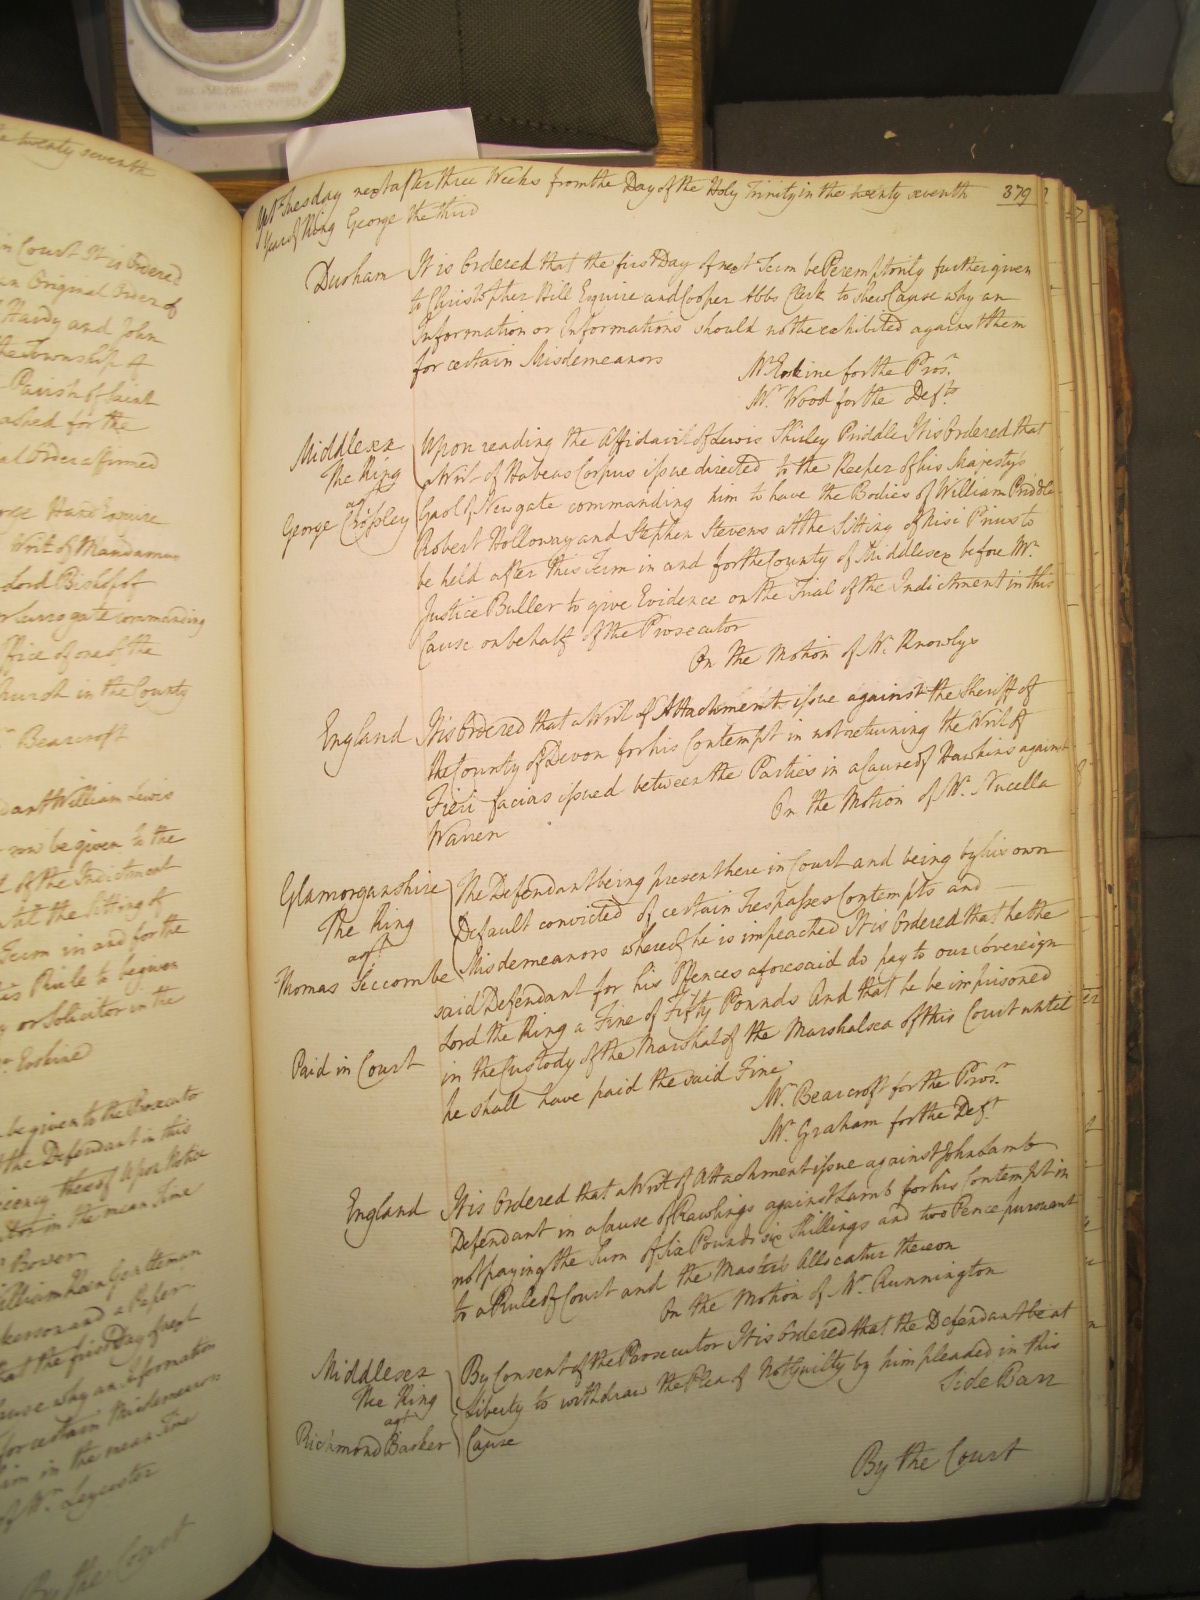 he twenty seventh
in Court It is Ordered
an Original Order of
Hardy and John
the Township of
Parish of Saint
ashed for the
al Order affirmed
rge Hand Esquire
Writ of Mandamus
Lord Bishop of
or Surrogate commanding
ffice of one of the
hurch in the County
Bearcroft
dant William Lewis
now be given to the
t of the Indictment
ntil the Sitting of
Term in and for the
this Rule to be given
y or Solicitor in the
Mr. Erskine
be given to the Prosecutor
the Defendant in this
ciency thereof Upon Notice
tor in the mean Time
Bower
William Hain Gentleman
kerson and a Paper
that the first Day of next
ause why an Information
for certain Misdemeanors
him in the mean Time
of Mr. Leycester
By the Court
Yet Tuesday next after three Weeks from the Day of the Holy Trinity in the twenty seventh 379
Year of King George the third
Durham It is Ordered that the first Day of next Term be Peremptorily further given
to Christopher Hill Esquire and Cooper Abbs Clerk to shew Cause why an
Information or Informations should not be exhibited against them
for certain Misdemeanors
Mr. Erskine for the Prosr.
Mr. Wood for the Defts.
Middlesex Upon reading the Affidavit of Lewis Shirley Priddle It is Ordered that
The King a Writ of Habeas Corpus issue directed to the Keeper of his Majesty's
agt. Gaol of Newgate commanding him to have the Bodies of William Priddle
George Crossley Robert Holloway and Stephen Stevens at the Sitting of Nisi Prius to
be held after this Term in and for the County of Middlesex before Mr.
Justice Buller to give Evidence on the Trial of the Indictment in this
Cause on behalf of the Prosecutor
On the Motion of Mr. Knowlys
England It is Ordered that a Writ of Attachment issue against the Sheriff of
the County of Devon for his Contempt in not returning the Writ of
Fieri facias issued between the Parties in a Cause of Hawkins against
Warren On the Motion of Mr. Nucella
Glamorganshire The Defendant being present here in Court and being by his own
The King Default convicted of certain Trespasses Contempts and
agt. Misdemeanors whereof he is impeached It is Ordered that he the
Thomas Seccombe said Defendant for his Offences aforesaid do pay to our Sovereign
Lord the King a Fine of Fifty Pounds And that he be imprisoned
Paid in Court in the Custody of the Marshal of the Marshalsea of this Court until
he shall have paid the said Fine
Mr. Bearcroft for the Prosr.
Mr. Graham for the Deft.
England It is Ordered that a Writ of Attachment issue against John Lamb
Defendant in a Cause of Rawlings against Lamb for his Contempt in
not paying the Sum of Six Pounds six Shillings and two Pence pursuant
to a Rule of Court and the Masters Allocatur thereon
On the Motion of Mr. Runnington
Middlesex By Consent of the Prosecutor It is Ordered that the Defendant be at
The King Liberty to withdraw the Plea of Not Guilty by him pleaded in this
agt. Cause Side Barr
Richmond Barker
By the Court